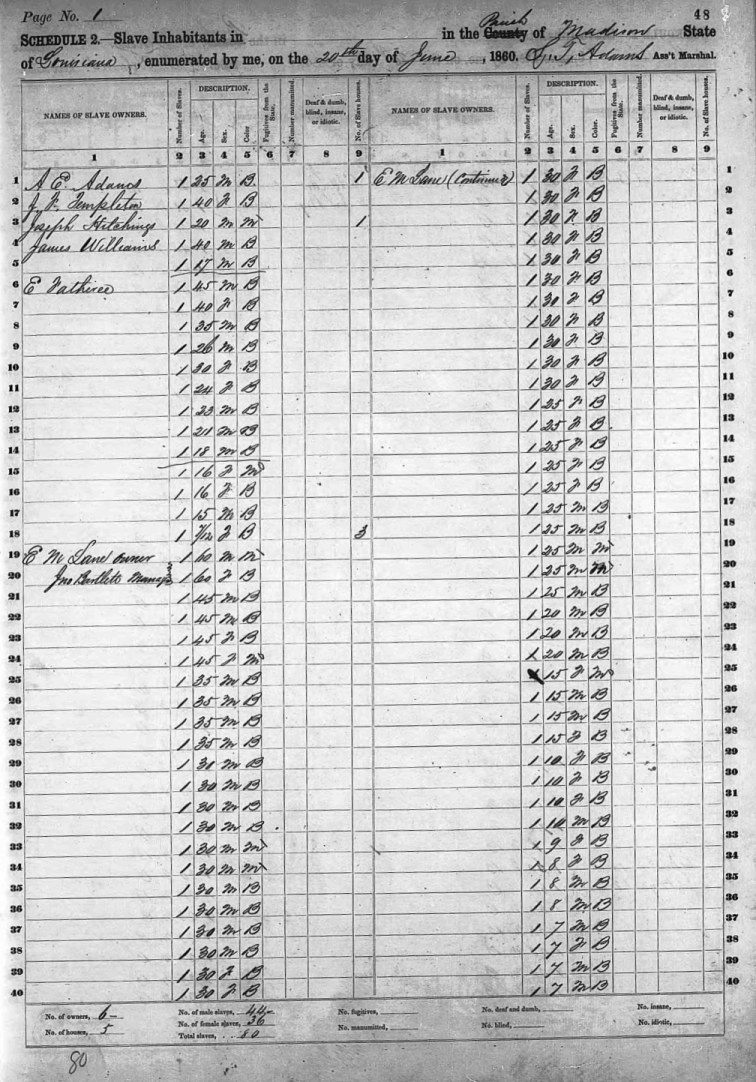 Page No. 1
48
SCHEDULE 2.—Slave Inhabitants in in the County Parish of Madison State
of Louisiana, enumerated by me, on the 20th day of June, 1860. Adams Ass't Marshal.
NAMES OF SLAVE OWNERS. Number of Slaves. DESCRIPTION. Age. Sex. Color Fugitives from the State. Number manumitted. Deaf & dumb, blind, insane, or idiotic. No. of Slave houses. NAMES OF SLAVE OWNERS. Number of Slaves. DESCRIPTION. Age. Sex. Color. Fugitives from the State. Number manumitted. Deaf & dumb, blind, insane, or idiotic. No. of Slave houses.
1 2 3 4 5 6 7 8 9 1 2 3 4 5 6 7 8 9
1 A E Adams 1 25 M B 1 E M Lane (Continued) 1 30 F B 1
2 Templeton 1 40 F B 1 30 F B 2
3 Joseph Hitchings 1 20 M M 1 1 30 F B 3
4 James Williams 1 40 M B 1 30 F B 4
5 1 17 M B 1 30 F B 5
6 E 1 45 M B 1 30 F B 6
7 1 40 F B 1 30 F B 7
8 1 35 M B 1 30 F B 8
9 1 26 M B 1 30 F B 9
10 1 30 F B 1 30 F B 10
11 1 24 F B 1 30 F B 11
12 1 23 M B 1 25 F B 12
13 1 21 M B 1 25 F B 13
14 1 18 M B 1 25 F B 14
15 1 16 F M 1 25 F B 15
16 1 16 F B 1 25 F B 16
17 1 15 M B 1 25 M B 17
18 1 7/12 F B 3 1 25 M B 18
19 E M Lane owner 1 60 M M 1 25 M M 19
20 Jno Bartlett Manager 1 60 F B 1 25 M M 20
21 1 45 M B 1 25 M B 21
22 1 45 M B 1 20 M B 22
23 1 45 F B 1 20 M B 23
24 1 45 F M 1 20 M B 24
25 1 35 M B 1 15 F M 25
26 1 35 M B 1 15 M B 26
27 1 35 M B 1 15 M B 27
28 1 35 M B 1 15 F B 28
29 1 30 M B 1 10 F B 29
30 1 30 M B 1 10 F B 30
31 1 30 M B 1 10 F B 31
32 1 30 M B 1 10 M B 32
33 1 30 M M 1 9 F B 33
34 1 30 M M 1 8 F B 34
35 1 30 M B 1 8 M B 35
36 1 30 M B 1 8 M B 36
37 1 30 M B 1 7 M B 37
38 1 30 M B 1 7 F B 38
39 1 30 F B 1 7 M B 39
40 1 30 F B 1 7 M B 40
No. of owners, 6 No. of male slaves, 44 No. fugitives, No. deaf and dumb, No. insane,
No. of houses, 5 No. of female slaves, 36 No. manumitted, No. blind, No. idiotic,
Total slaves, 80
80